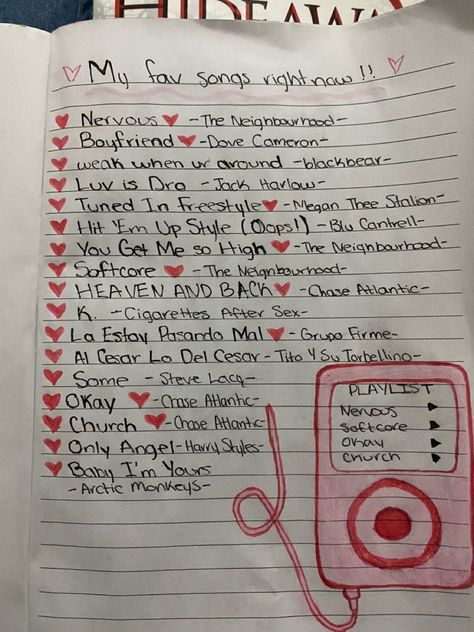 HIDEAWAY
My fav songs right now!!
Nervous - The Neighbourhood-
Boyfriend - Dove Cameron-
weak when ur around - blackbear-
Luv is Dro - Jack Harlow-
Tuned In Freestyle - Megan Thee Stalion-
Hit 'Em Up Style (Oops!) - Blu Cantrell-
You Get Me so High - The Neighbourhood-
Softcore - The Neighbourhood-
HEAVEN AND BACK - Chase Atlantic-
K. - Cigarettes After Sex-
La Estoy Pasando Mal - Grupo Firme-
Al Cesar Lo Del Cesar - Tito Y Su Torbellino-
Some - Steve Lacy-
Okay - Chase Atlantic-
Church - Chase Atlantic-
Only Angel - Harry Styles-
Baby I'm Yours
- Arctic Monkeys-
PLAYLIST
Nervous
Softcore
Okay
Church